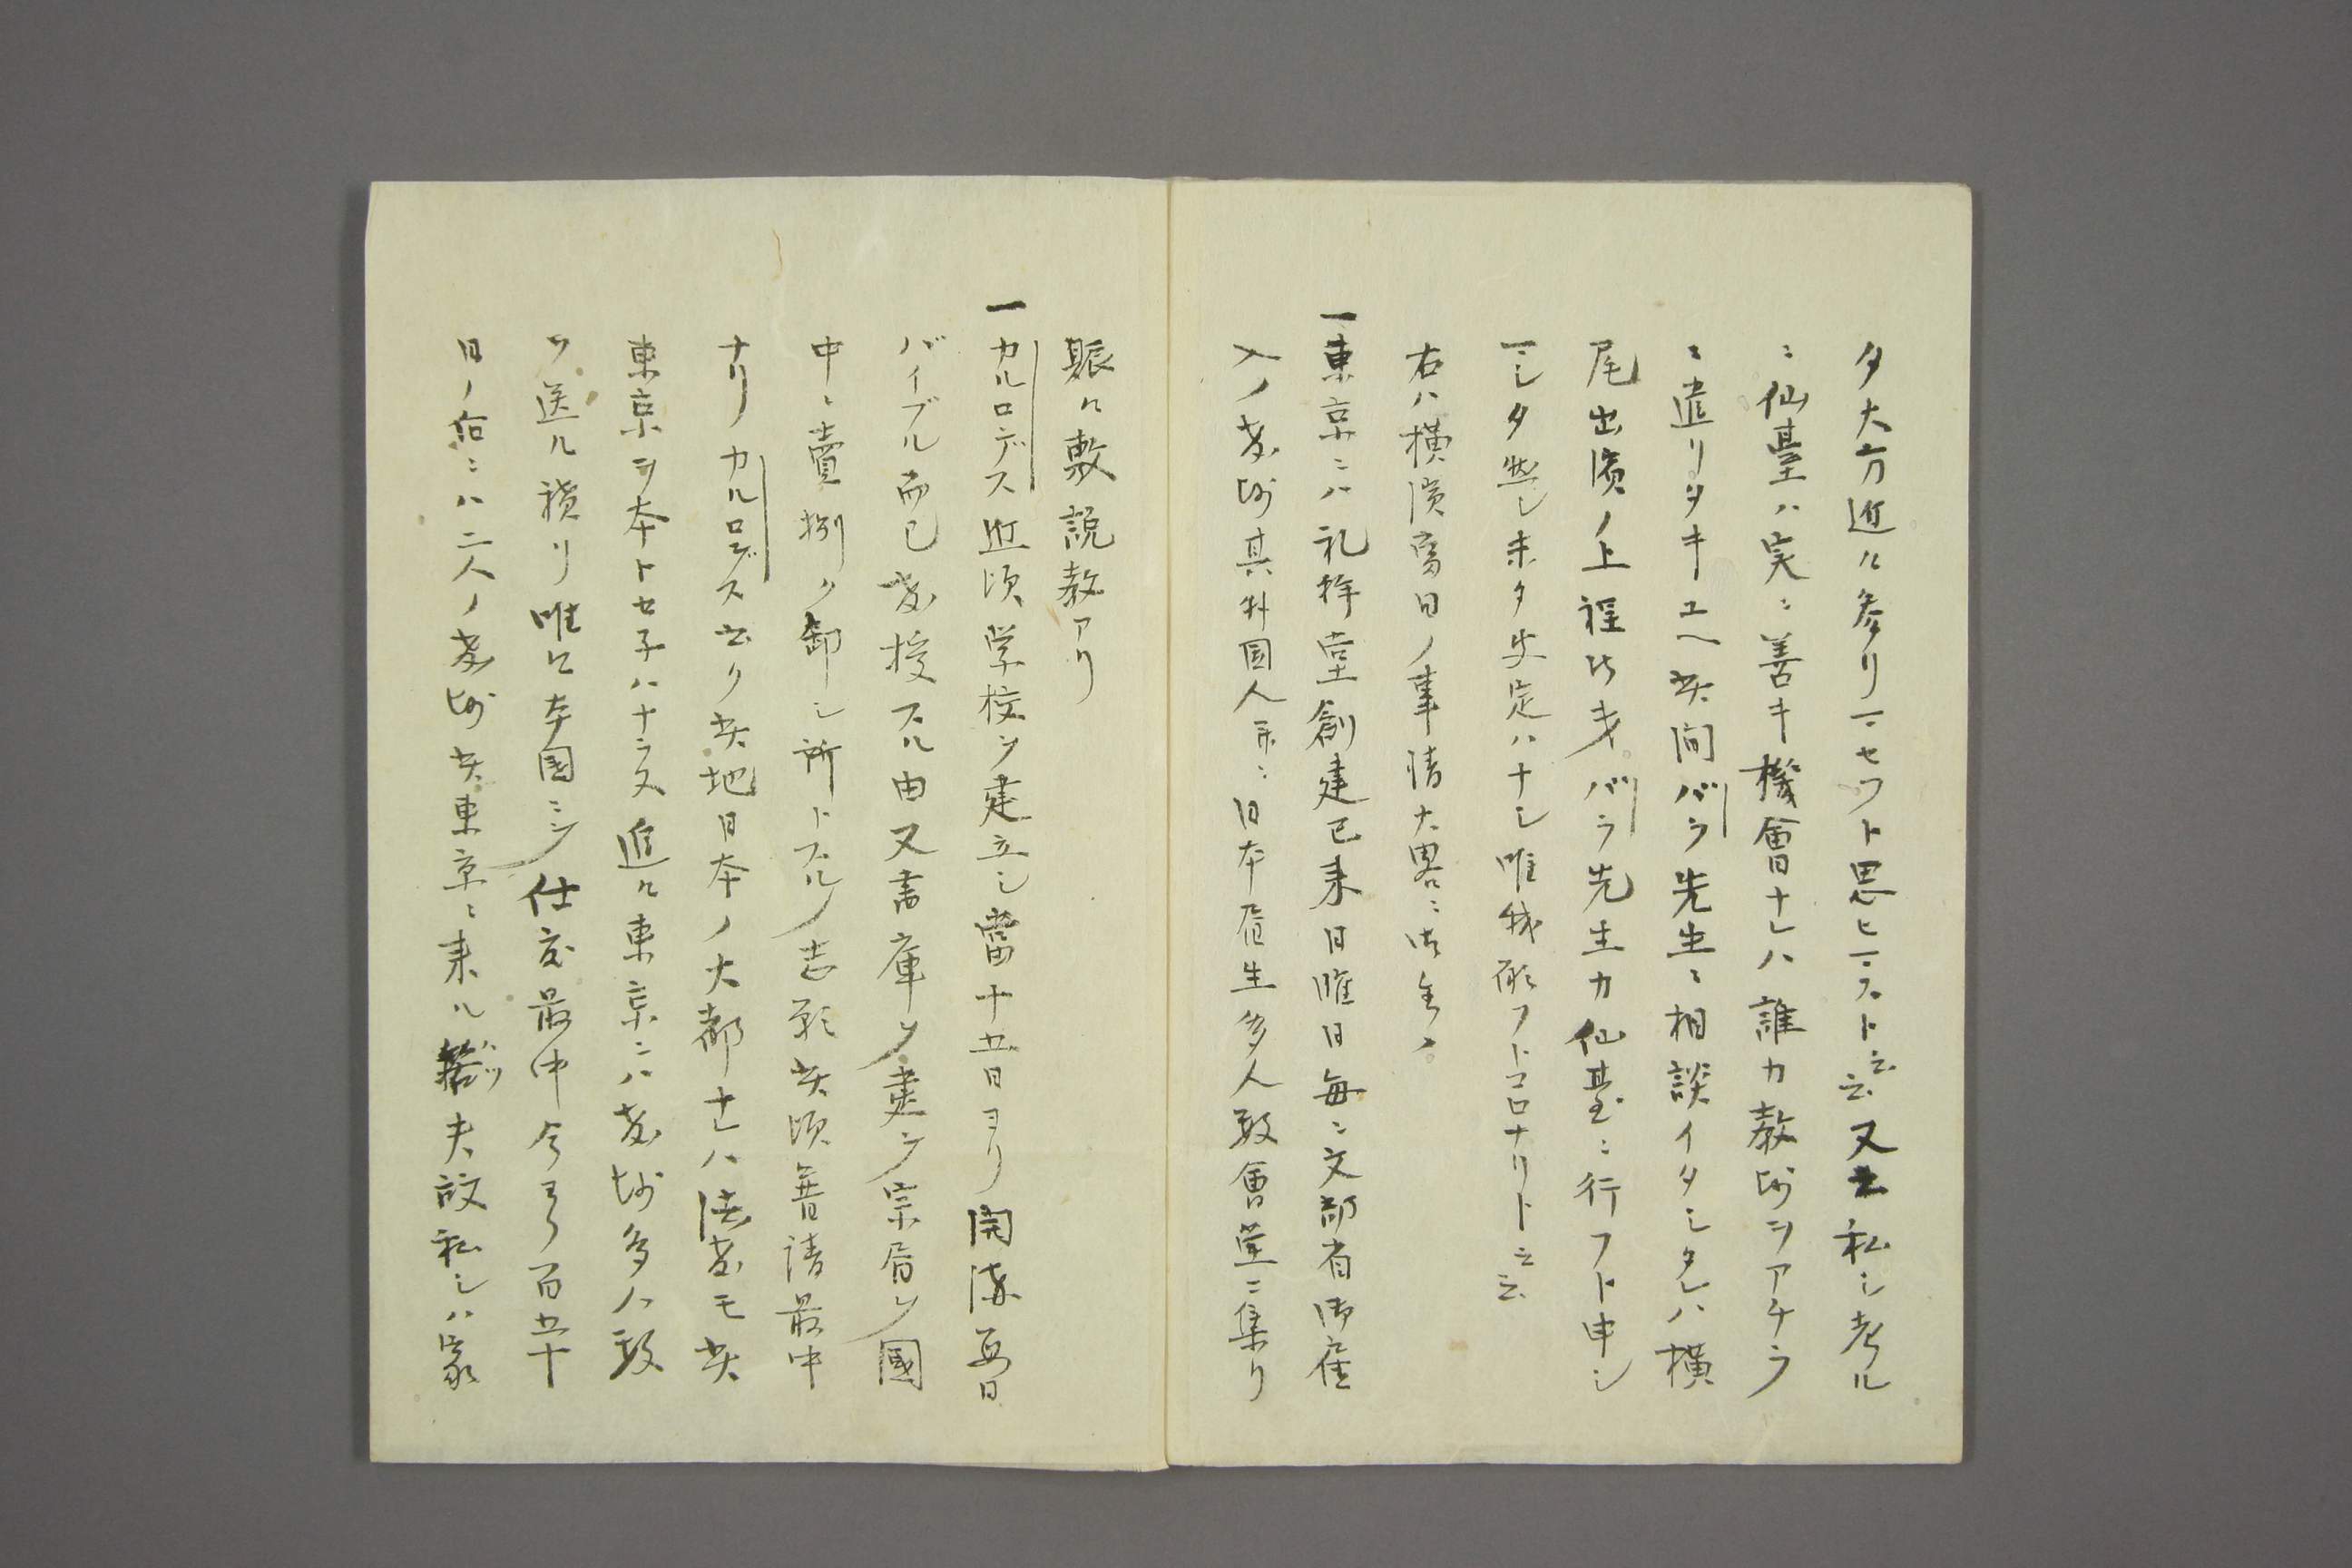 タ大方近々参リマセウト思ヒマスト云云又云私シ考ル
ニ仙臺ハ実ニ善キ機會ナレハ誰カ教師ヲアチラ
ニ遣リタキユヘ此間バラ先生ニ相談イタシタレハ横
尾出濱ノ上裎此才バラ先生カ仙基ニ行フト申シ
マシタ然シ未タ決定ハナシ唯我祈フトコロナリト云云
右ハ横濱寓日ノ事情大畧ニ御坐候
一東京ニハ礼拝堂創建已来日曜日毎ニ文部省御雇
入ノ教師其外国人等ニ日本居生多人数會堂ニ集リ
賑々敷説教アリ
一カルロデス近頃学校ヲ建立シ當十五日ヨリ開講毎日
バイブル而已教授スル由又書庫ヲ建ラ宗居ヲ國
中ニ賣捌ク卸シ所トスルノ志願此頃普請最中
ナリカルロデス云ク此地日本ノ大都ナレハ傳教モ此
東京ヲ本トセ子ハナラス追々東京ニハ教師多人数
ヲ送ル積リ唯今本国ニテ仕度最中今ヨリ百五十
日ノ后ニハ二人ノ教師此東京ニ来ル筈夫故私シハ家